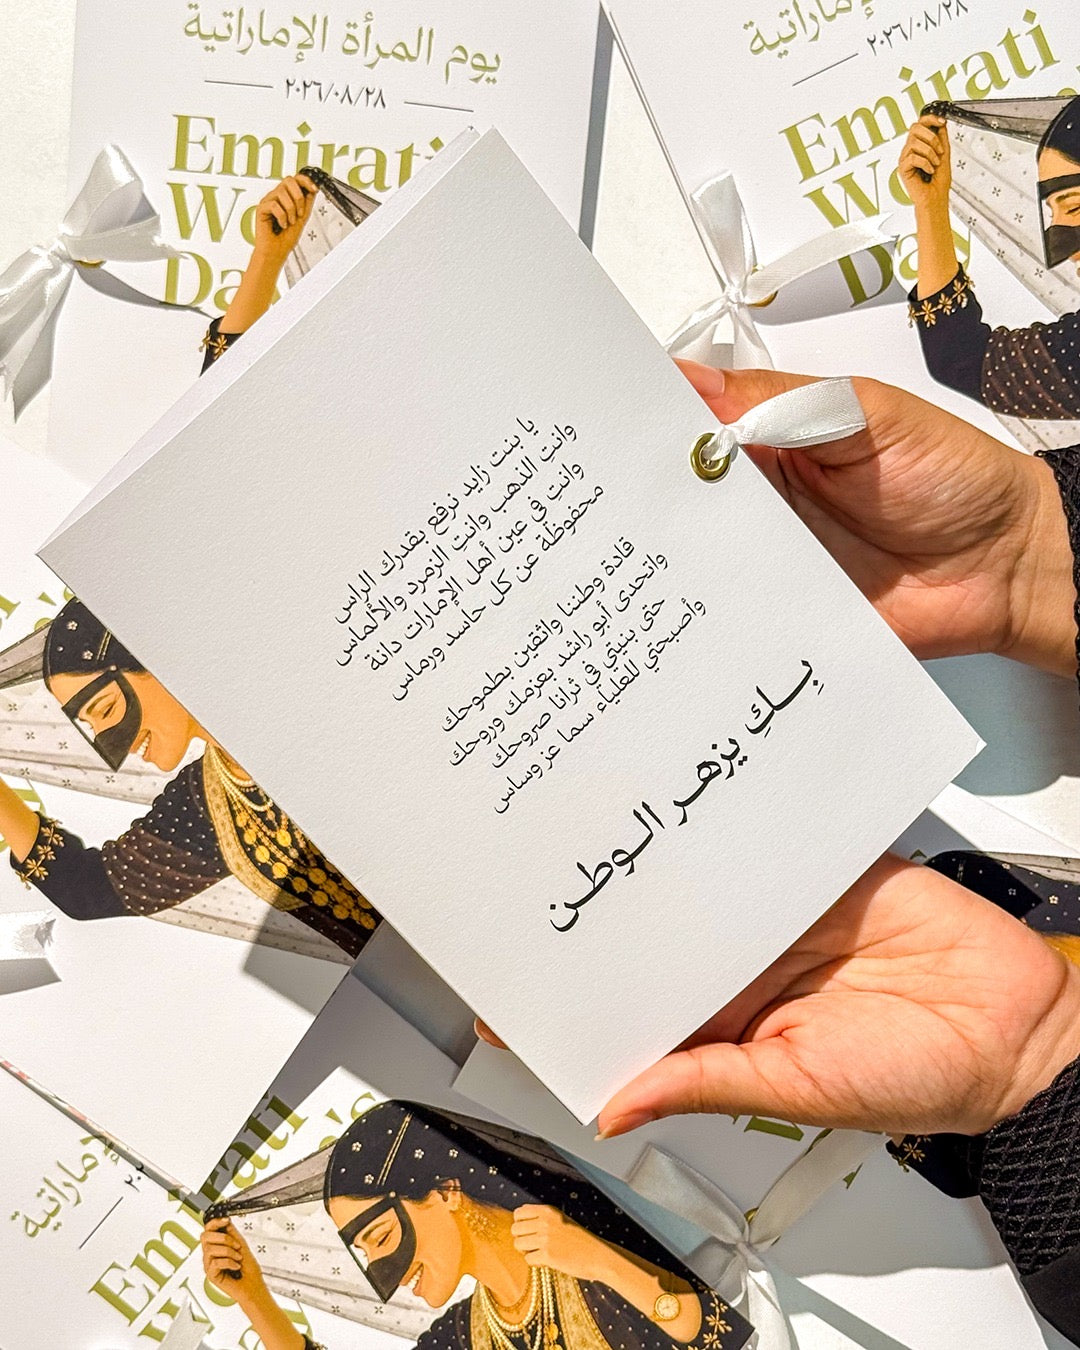 يوم المرأة الإماراتية
٢٠٢٦/٠٨/٢٨
Emirati
Day
الإماراتية
٢٠٢٦/٠٨/٢٨
Emirati
Day
يا بنت زايد نرفع بقدرك الراس
وانتِ الذهب وانتِ الزمرد والألماس
وانتِ في عين أهل الإمارات دانة
محفوظة عن كل حاسد ورماس
قادة وطننا واثقين بطموحك
واتحدى أبو راشد بعزمك وروحك
حتى بنيتي في ثرانا صروحك
وأصبحتي للعلياء سما عز وساس
بِــكِ يزهـر الـوطـن
الإماراتية
Emirati